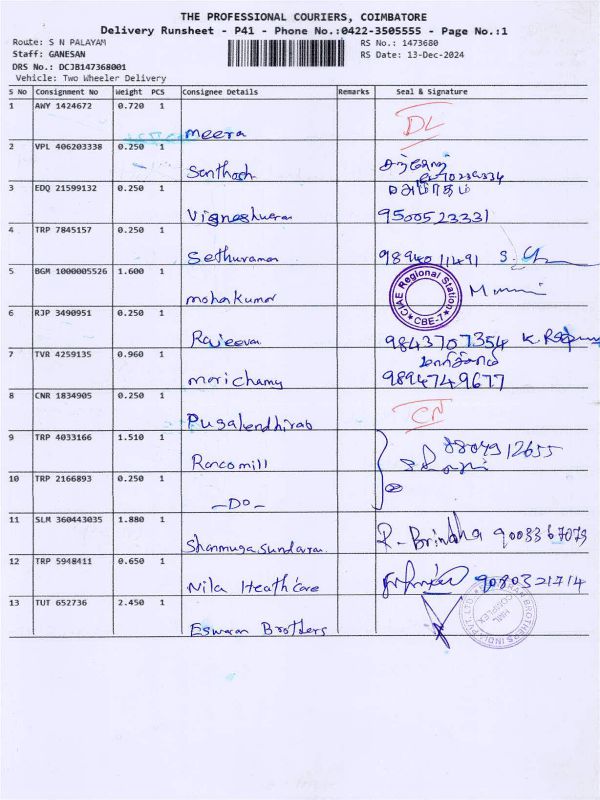 THE PROFESSIONAL COURIERS, COIMBATORE
Delivery Runsheet - P41 - Phone No.:0422-3505555 - Page No.:1
Route: S N PALAYAM
RS No.: 1473680
Staff: GANESAN
RS Date: 13-Dec-2024
DRS No.: DCJB147368001
Vehicle: Two Wheeler Delivery
S No Consignment No Weight PCS Consignee Details Remarks Seal & Signature
1 AWY 1424672 0.720 1 meera DL
2 VPL 406203338 0.250 1 Santhosh
3 EDQ 21599132 0.250 1 Vigneshwaran 9500523331
4 TRP 7845157 0.250 1 Sethuraman 9894011491
5 BGM 1000005526 1.600 1 mohakumar ICAE Regional Station CBE-7
6 RJP 3490951 0.250 1 Rajeevan 9843707354
7 TVR 4259135 0.960 1 marichamy 9894749677
8 CNR 1834905 0.250 1 Pugalendhirab CN
9 TRP 4033166 1.510 1 Roncomill 8804912655
10 TRP 2166893 0.250 1 -Do-
11 SLM 360443035 1.880 1 Shanmuga sundaram R- Brindha 9003367073
12 TRP 5948411 0.650 1 Nila Healthcare 9080321714
13 TUT 652736 2.450 1 Eswaran Brothers